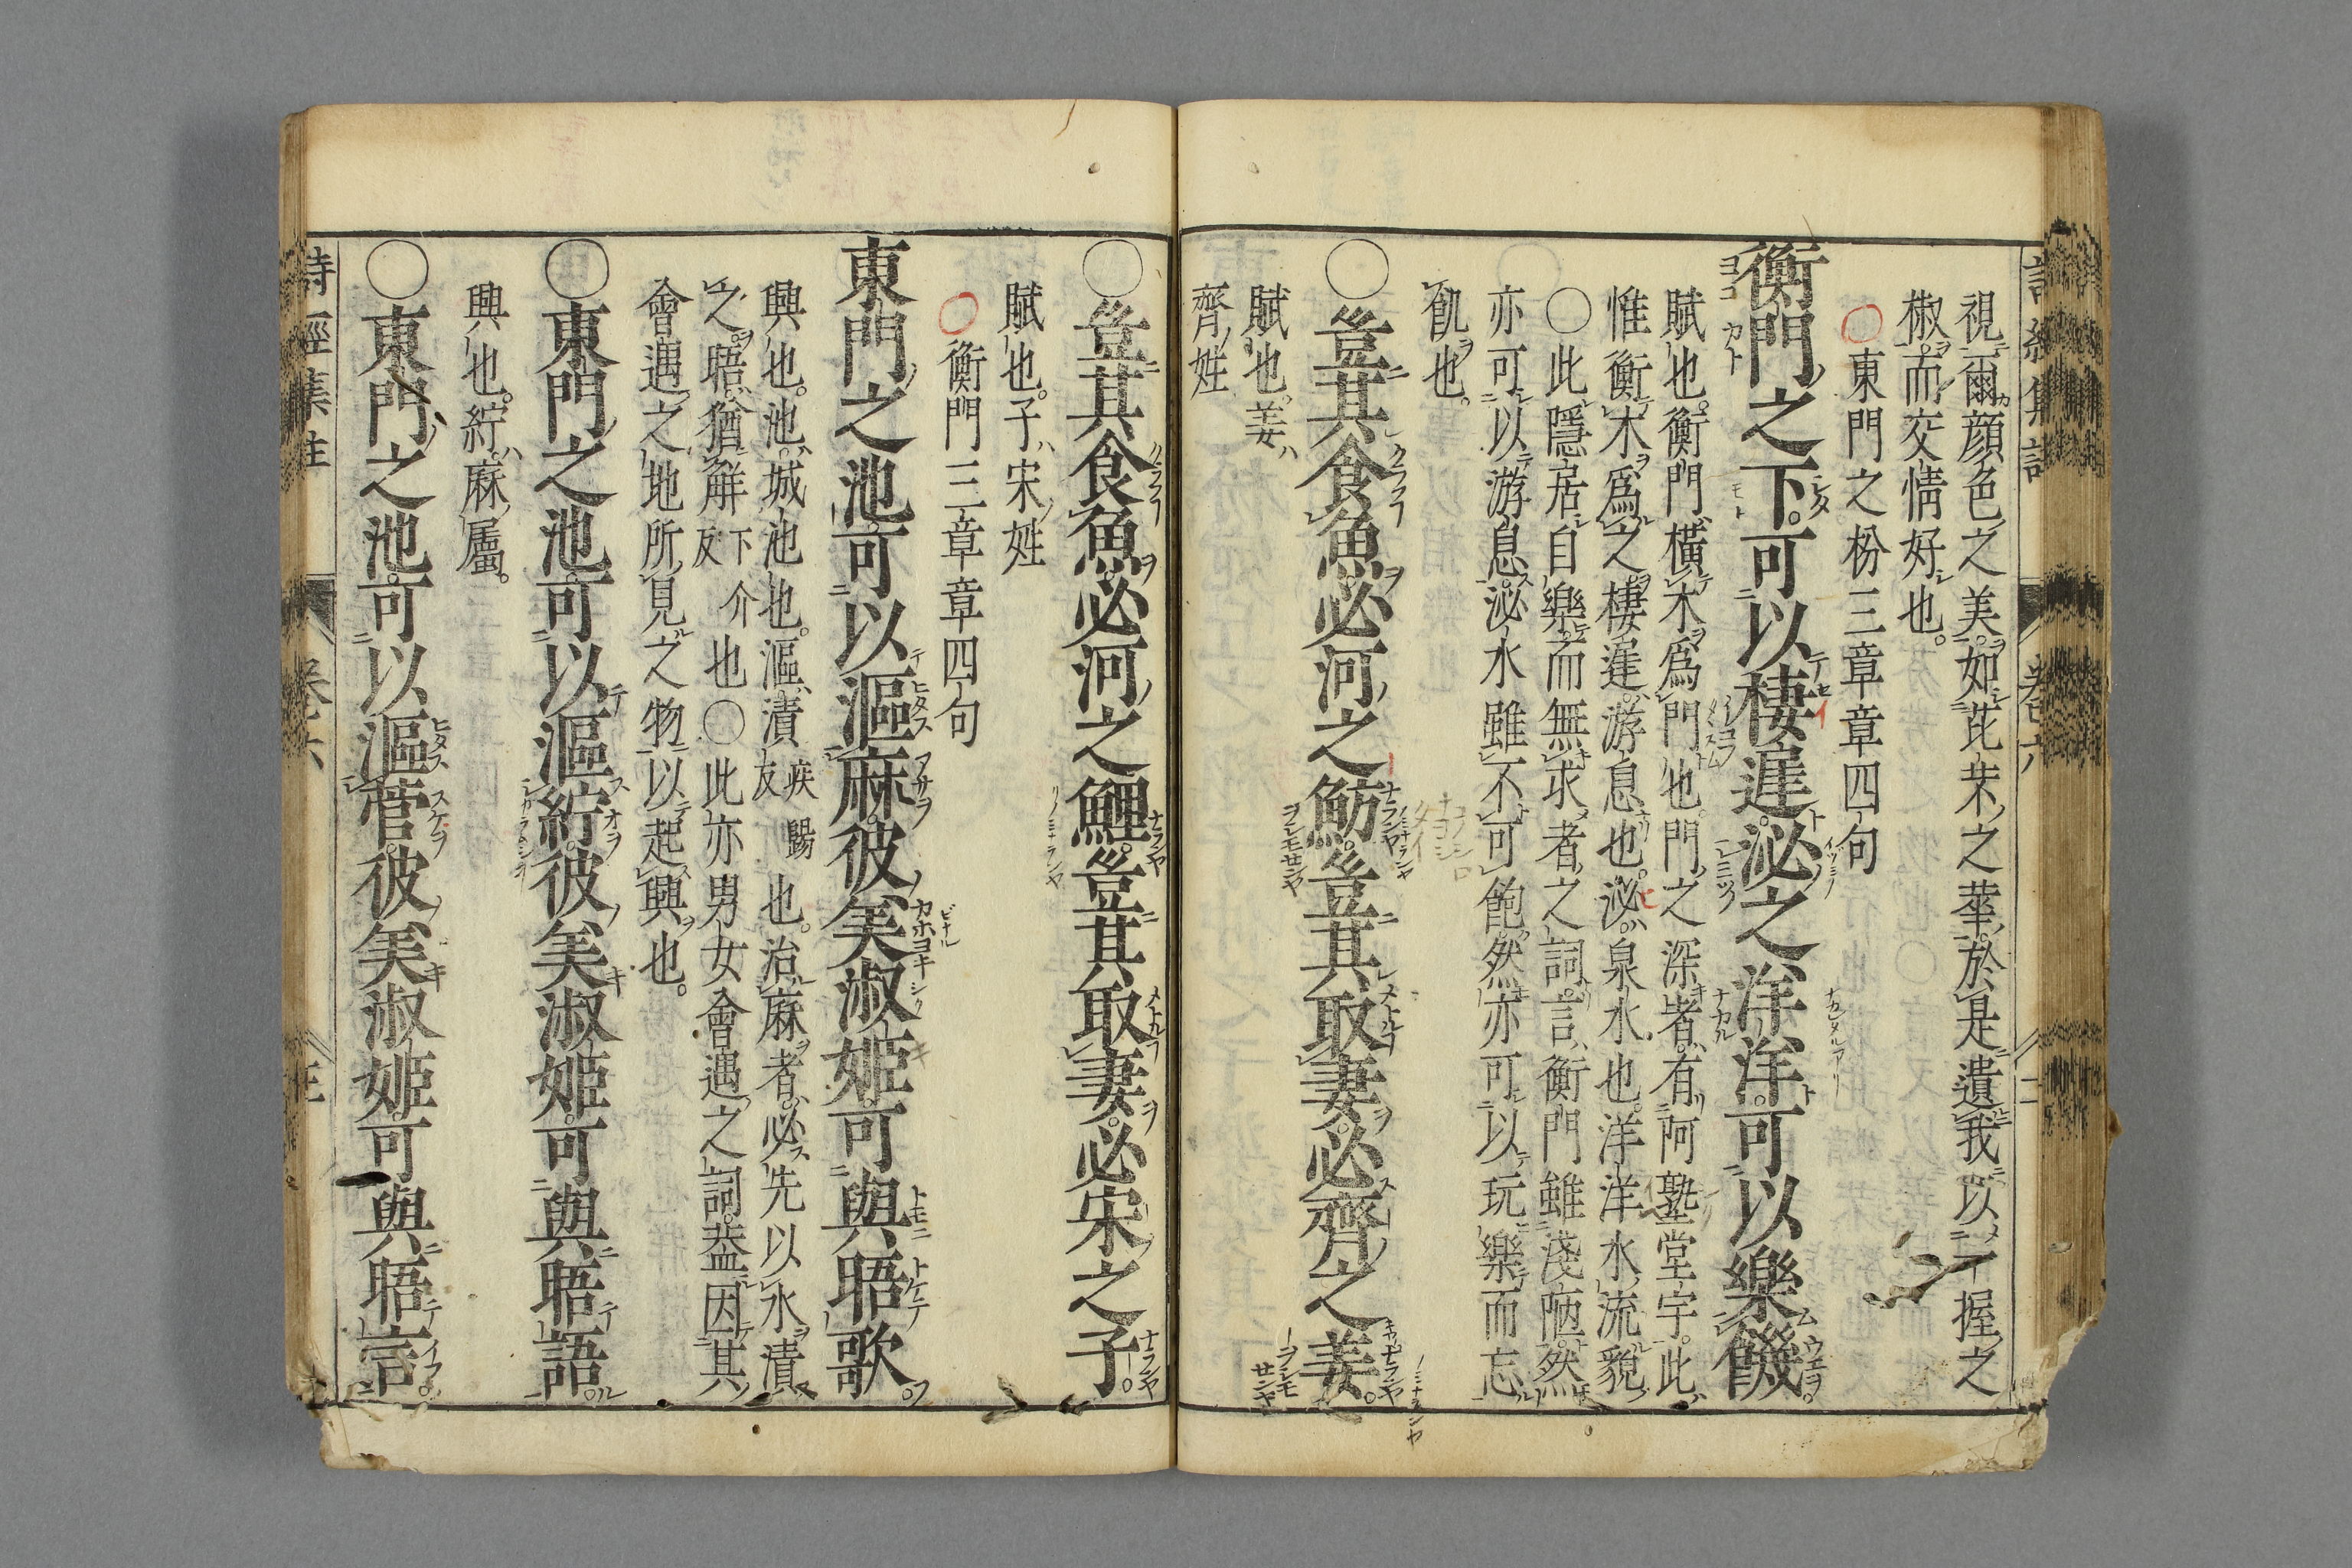 視爾顔色之美如芘芣之華於是遺我以一握之
椒而交情好也
○東門之枌三章章四句
衡門之下可以棲遲泌之洋洋可以樂饑
賦也衡門橫木爲門也門之深者有阿塾堂宇此
惟衡木爲之棲遲游息也泌泉水也洋洋水流貌
○此隱居自樂而無求者之詞言衡門雖淺陋然
亦可以游息泌水雖不可飽然亦可以玩樂而忘
飢也
○豈其食魚必河之魴豈其取妻必齊之姜
賦也姜
齊姓
○豈其食魚必河之鯉豈其取妻必宋之子
賦也子宋姓
○衡門三章章四句
東門之池可以漚麻彼美淑姬可與晤歌
興也池城池也漚漬疾賜友也治麻者必先以水漬
之晤猶解下介反也○此亦男女會遇之詞葢因其
會遇之地所見之物以起興也
○東門之池可以漚紵彼美淑姬可與晤語
興也紵麻屬
○東門之池可以漚菅彼美淑姬可與晤言
詩經集註
卷六